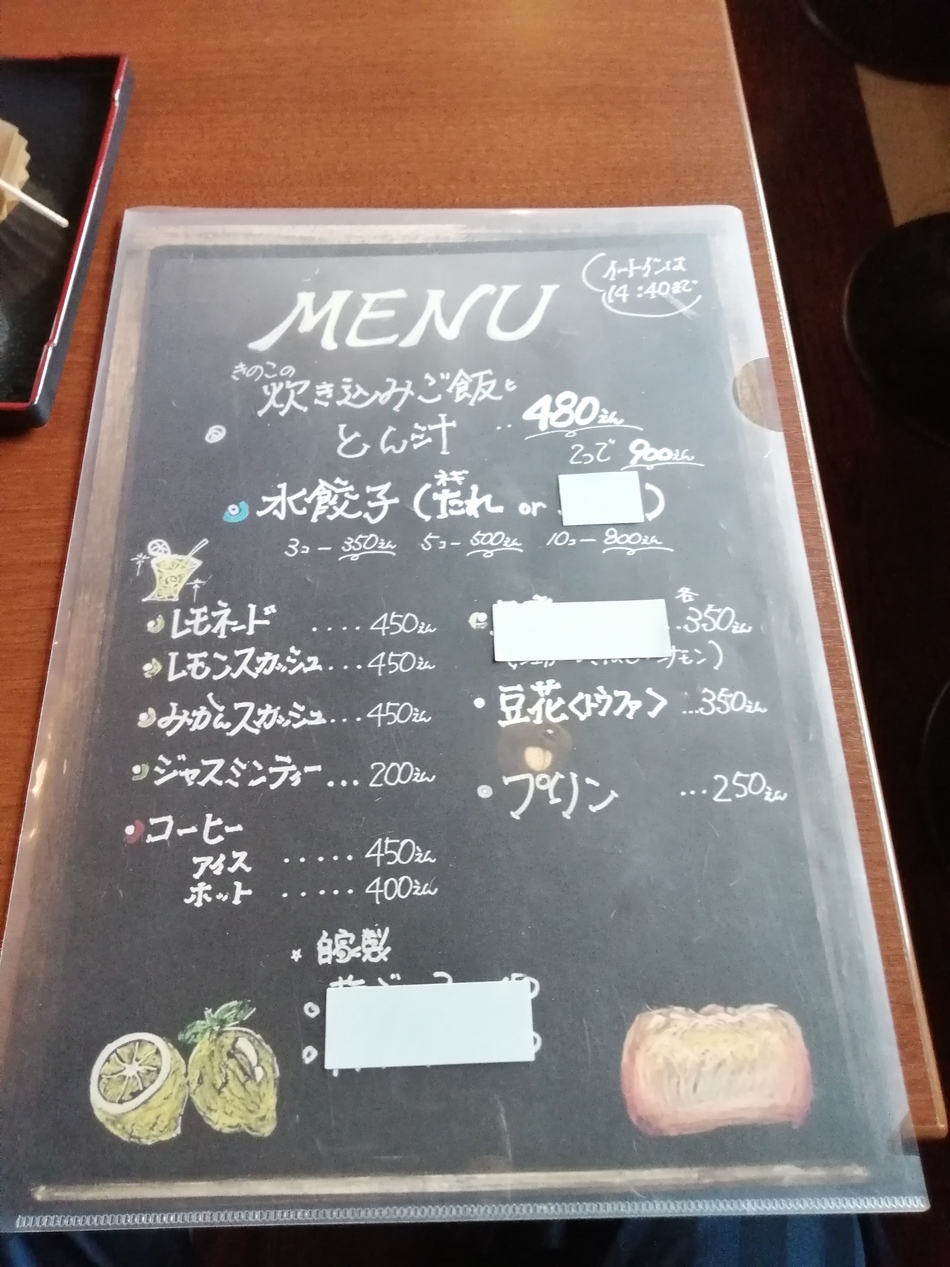 イートインは
14:40まで
MENU
きのこの
炊き込みご飯と
とん汁 ‥480えん
2つで 900えん
水餃子(ネギだれ or )
3コー350えん 5コー500えん 10コー800えん
レモネード ....450えん
レモンスカッシュ...450えん
みかんスカッシュ...450えん
ジャスミンティー...200えん
コーヒー
アイス .....450えん
ホット .....400えん
各
..350えん
豆花<トウファ> ...350えん
プリン ...250えん
☆自家製